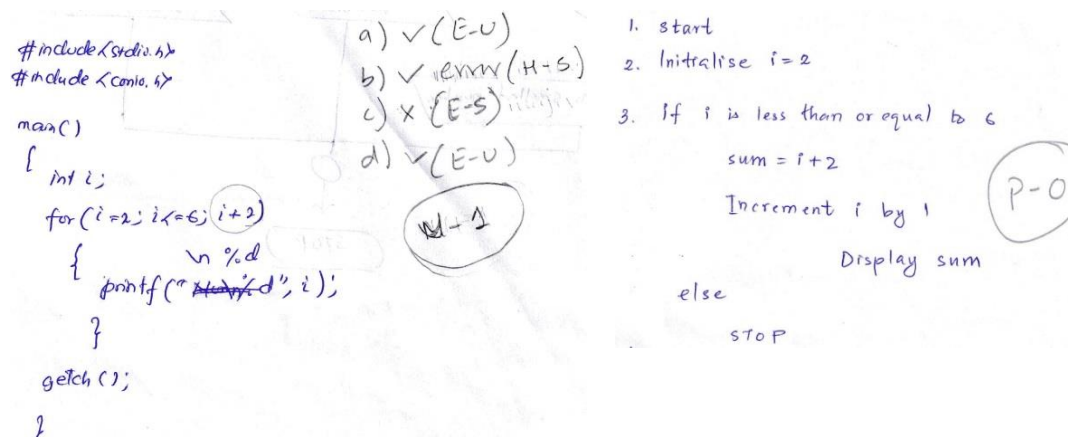 #include<stdio.h>
#include<conio.h>
main()
{
int i;
for(i=2; i<=6; i+2)
{
\n %d
printf(" d", i);
}
getch();
}
a) ✓(E-U)
b) ✓ error(H-S)
c) × (E-S)
d) ✓(E-U)
1. start
2. Initialise i=2
3. If i is less than or equal to 6
sum = i+2
Increment i by 1
Display sum
else
STOP
P-0